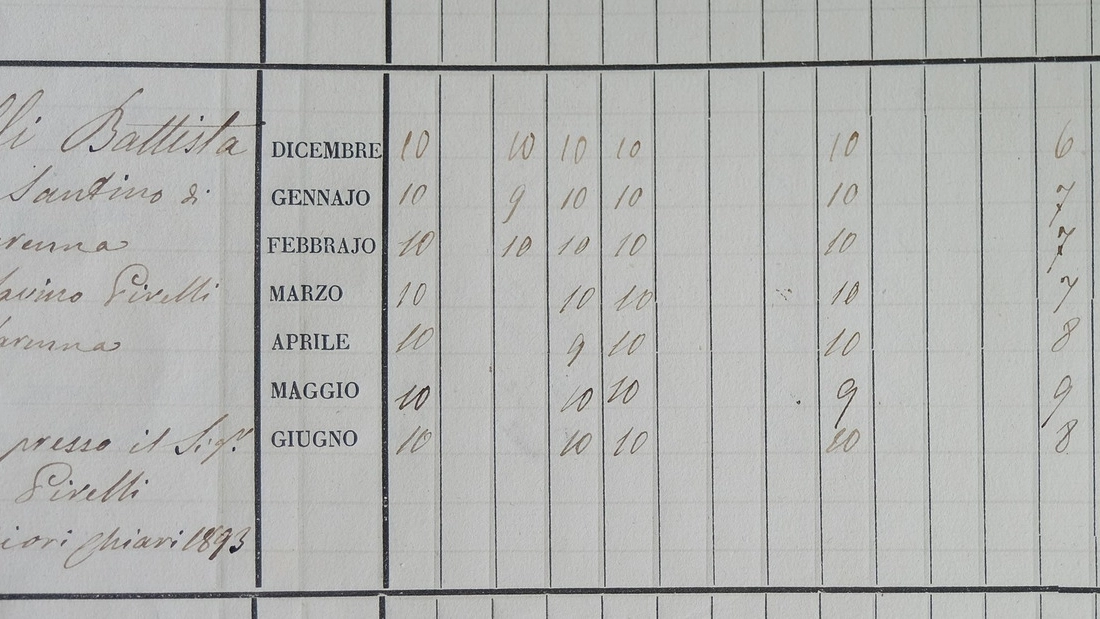 lli Battista DICEMBRE 10 10 10 10 10 6
Santino di GENNAJO 10 9 10 10 10 7
FEBBRAJO 10 10 10 10 10 7
Pirelli MARZO 10 10 10 10 7
APRILE 10 9 10 10 8
MAGGIO 10 10 10 9 9
presso il Sigr. GIUGNO 10 10 10 10 8
Pirelli
iori Chiari 1893